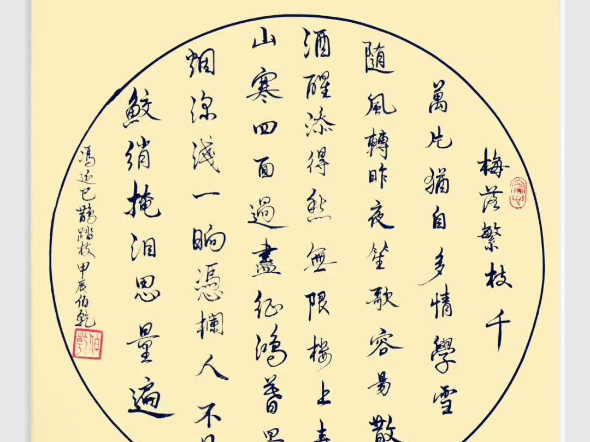 梅落繁枝千
萬片猶自多情學雪
隨風轉昨夜笙歌容易散
酒醒添得愁無限樓上春
山寒四面過盡征鴻暮
烟深淺一晌憑欄人不
鮫綃掩泪思量遍
馮延巳鵲踏枝甲辰伯乾